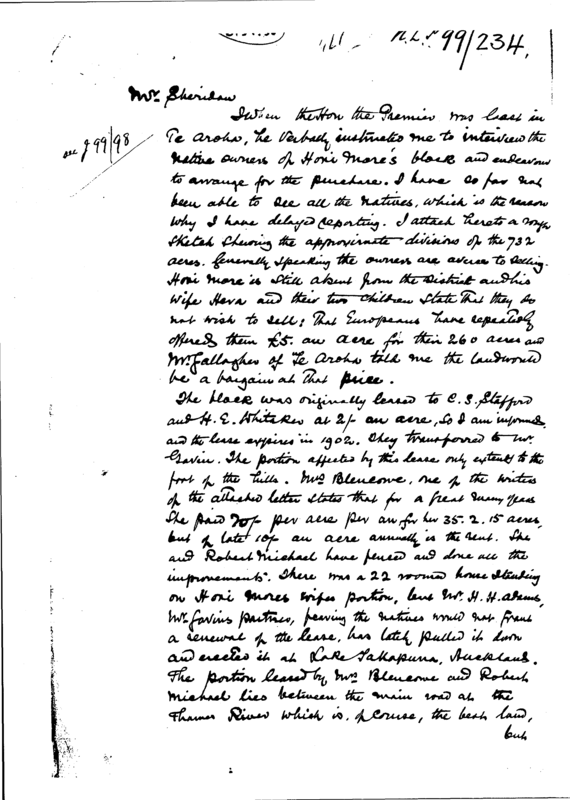 N.L.P. 99/234.
Mr. Sheridan
see J 99/98
When the Hon the Premier was last in
Te Aroha, he verbally instructed me to interview the
native owners of Honi More's block and endeavour
to arrange for the purchase. I have so far not
been able to see all the natives, which is the reason
why I have delayed reporting. I attach hereto a rough
sketch shewing the approximate divisions of the 732
acres. Generally speaking the owners are averse to selling.
Honi More is still absent from the District and his
wife Hera and their two children state that they do
not wish to sell; that Europeans have repeatedly
offered them £5. an acre for their 260 acres and
Mr. Gallagher of Te Aroha told me the land would
be a bargain at that price.
The block was originally leased to C. S. Stafford
and H. E. Whitaker at 2/- an acre, so I am informed
and the lease expires in 1902. They transferred to Mr.
Gavin. The portion affected by this lease only extends to the
foot of the hills. Mrs Blencowe, one of the writers
of the attached letter states that for a great many years
she paid 20/- per acre per an for her 35. 2. 15 acres,
but of late 10/- an acre annually is the rent. She
and Robert Michael have fenced and done all the
improvements. There was a 22 roomed house standing
on Honi Mores wifes portion, but Mr. H. H. Adams,
Mr Gavins partner, fearing the natives would not grant
a renewal of the lease, has lately pulled it down
and erected it at Lake Takapuna, Auckland.
The portion leased by Mrs Blencowe and Robert
Michael lies between the main road at the
Thames River which is, of course, the best land,
but